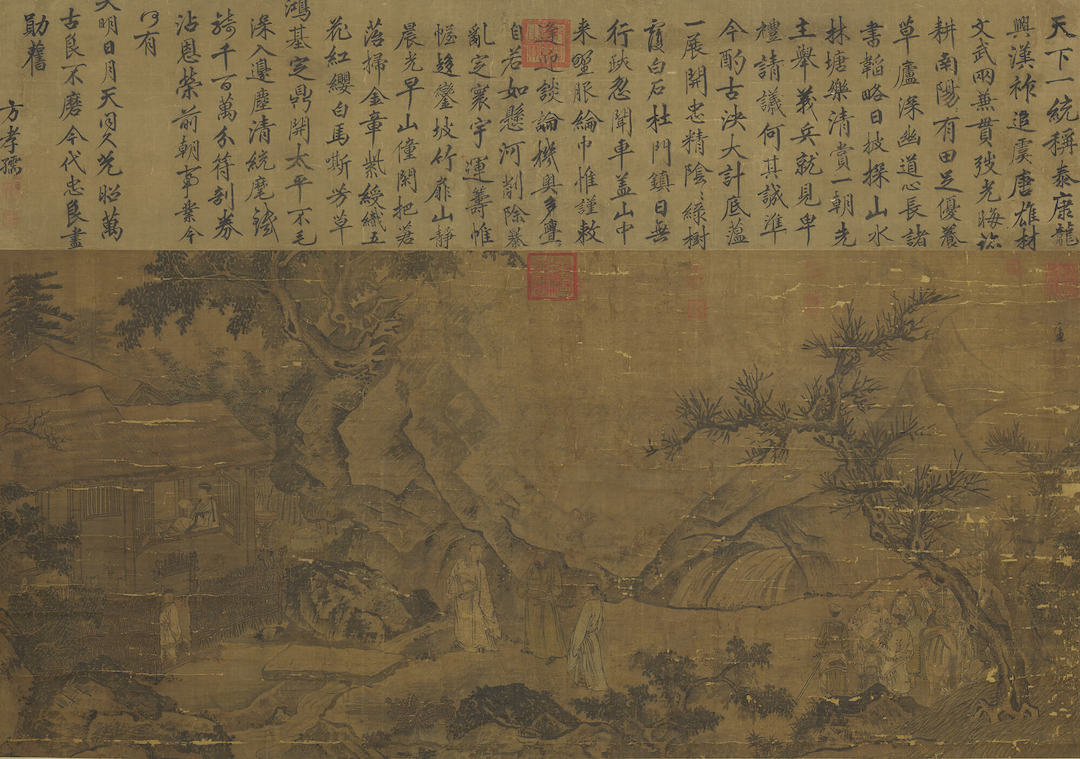 天下一統稱泰康龍
興漢祚追虞唐雄材
文武兩兼貫弢光晦迹
耕南陽有田足優養
草廬深幽道心長諸
書韜略日披探山水
林塘樂清賞一朝先
主舉義兵就見卑
禮請議何其誠準
今酌古決大計底蘊
一展開忠精陰〻綠樹
覆白石杜門鎮日無
行跡忽聞車蓋山中
來野服綸巾惟謹敕
逢迎談論機奧多亹
自若如懸河削除暴
亂定寰宇運籌帷
幄趨鑾坡竹扉山靜
晨光早山僮閑把苕
落掃金章紫綬織五
花紅纓白馬嘶芳草
鴻基定鼎開太平不毛
深入邊塵清統麾鐵
騎千百萬分符剖券
沾恩榮前朝事業今
何有
大明日月天同久光昭萬
古良不磨今代忠良盡
勛舊
方孝孺